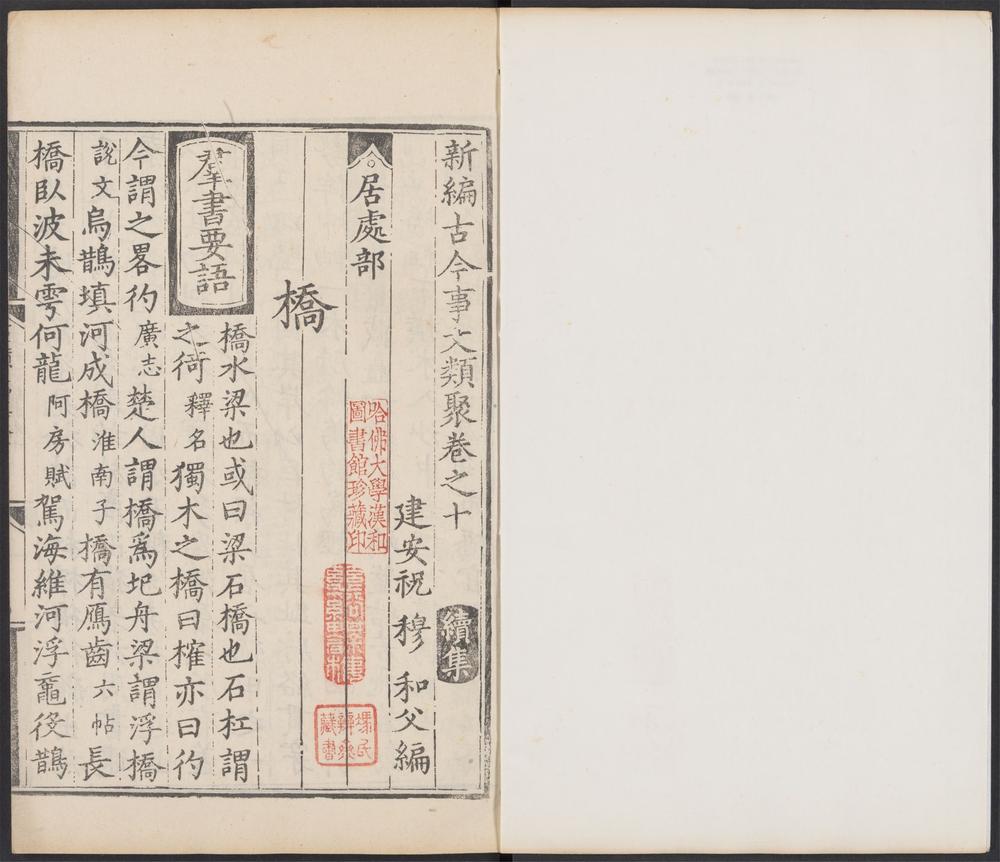 新編古今事文類聚卷之十
續集
建安祝 穆 和父編
居處部
哈佛大學漢和
圖書館珍藏印
橋
橋水梁也或曰梁石橋也石杠謂
羣書要語
之徛釋名獨木之橋曰榷亦曰彴
今謂之畧彴廣志楚人謂橋爲圯舟梁謂浮橋
說文烏鵲填河成橋淮南子橋有鴈齒六帖長
橋臥波未雩何龍阿房賦駕海維河浮黿役鵲